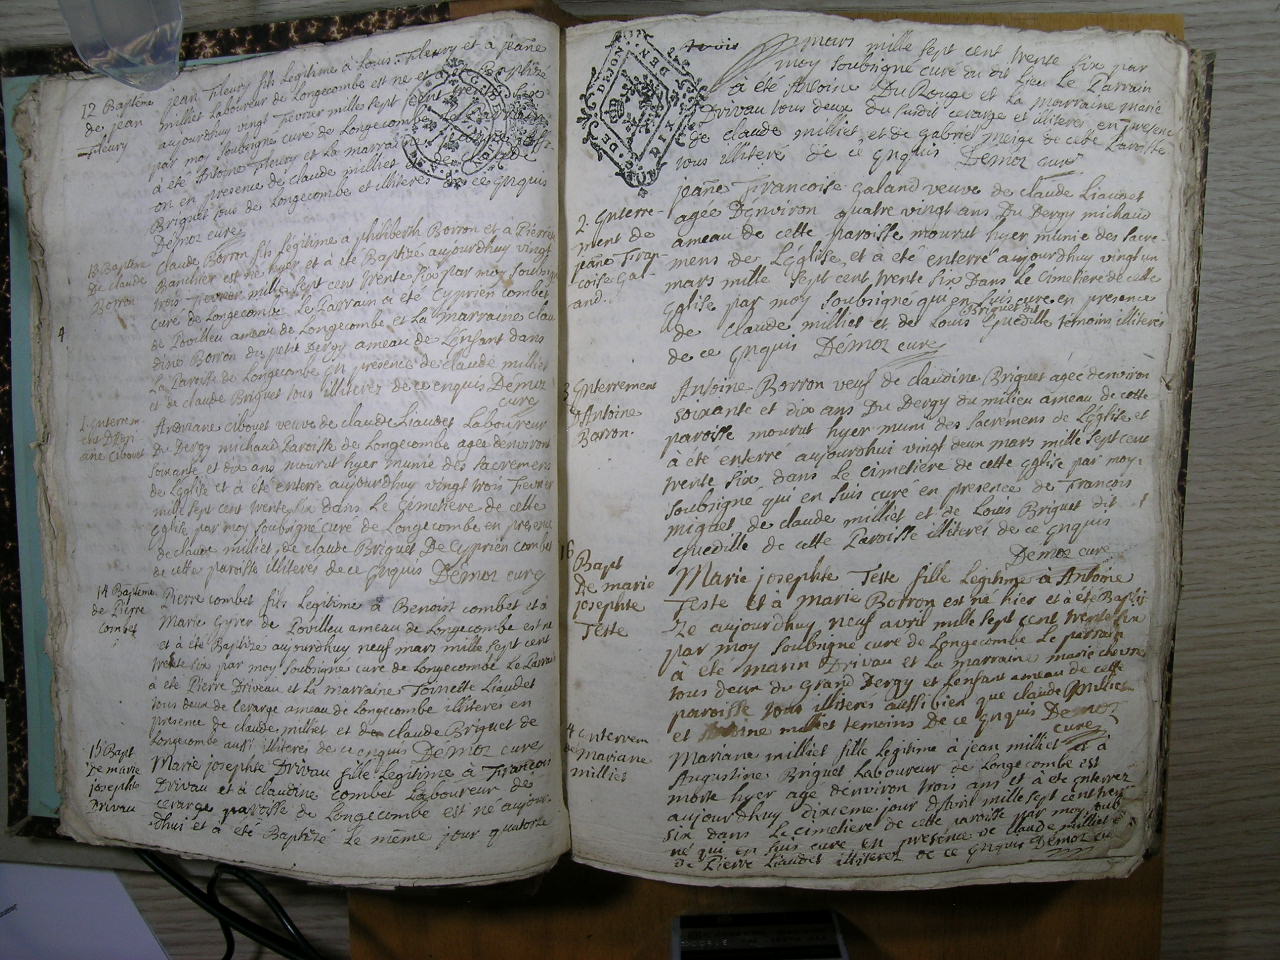 12 Baptême
de jean
fleury
jean fleury fils Legitime à Louis fleury et à jeane
milliet Laboureur de Longecombe est né et a été Baptizé
aujourdhuy vingt fevrier mille sept cent trente six
par moy soubsigné curé de Longecombe
à été Antoine fleury et La marraine
on en presence de claude milliet
Briguet tous de Longecombe et illiteres de ce Enquis
Demoz curé
13 Baptême
De claude
Borron
claude Borron fils Légitime à philiberth Borron et à Pierrine
Banchier est né hyer et à été Baptizé aujourdhuy vingt
trois fevrier mille sept cent trente six par moy soubsigné
curé de Longecombe Le Parrain a été Cyprien combet
de Povilleu ameau de Longecombe et La marraine clau
dine Borron du petit Dergy ameau de L'enfant dans
La Paroisse de Longecombe En présence de claude milliet
et de claude Briguet tous illiteres de ce enquis Demoz
curé
1 Enterrem
ent D'Adri
ane Cibouet
Andriane Cibouet veuve de claude Liaudet Laboureur
Du Dergy michaud Paroisse de Longecombe agée denviron
soixante et dix ans mourut hyer munie des sacremens
de L'église et à été enterré aujourdhuy vingt trois fevrier
mille sept cent trente six dans Le Cimetiere de cette
Eglise par moy soubsigné curé de Longecombe en presence
de claude milliet, de claude Briguet De Cyprien combet
de cette paroisse illiteres de ce Enquis Demoz curé
14 Baptême
de Pierre
combet
Pierre combet fils Legitime à Benoist combet et à
Marie Gyrer de Povilleu ameau de Longecombe est né
et à été Baptizé aujourdhuy neuf mars mille sept cent
trente six par moy soubsigné curé de Longecombe Le Parrain
à été Pierre Driveau et La marraine Toinette Liaudet
tous deux de cerarge ameau de Longecombe illiteres en
presence de claude milliet et de claude Briguet de
Longecombe aussi illiteres de ce enquis Demoz curé
15 Bapt
De marie
josephte
Drivau
Marie josephte Drivau fille Legitime à François
Drivau et à claudine combet Laboureur de
cerarge paroisse de Longecombe est né aujour-
dhui et à été Baptizé Le même jour quatorze
mars mille sept cent trente six par
moy soubsigné curé du dit Lieu Le Parrain
à été Antoine Du Rouge et La marraine marie
Drivau tous deux du susdit cerarge et illiteres en presence
de claude milliet et de gabriel meige de cette Paroisse
tous illiteré de ce Enquis Demoz curé
2. Enterre-
ment de
jeane Fran-
coise Gal-
and.
jeane Francoise Galand veuve de claude Liaudet
agée Denviron quatre vingt ans Du Dergy michaud
ameau de cette paroisse mourut hyer munie des sacre-
mens de L'Eglise et à été enterré aujourdhuy vingt un
mars mille sept cent trente six Dans Le Cimetiere de cette
Eglise par moy soubsigné qui en suis curé en presence
de claude milliet et de Louis Briguet dit Guedille témoins illiteres
de ce Enquis Demoz curé
3 Enterrement
D'Antoine
Borron.
Antoine Borron veuf de claudine Briguet agée denviron
soixante et dix ans Du Dergy du milieu ameau de cette
paroisse mourut hyer muni des sacremens de L'Eglise et
à été enterré aujourdhui vingt deux mars mille sept cent
trente six dans Le cimetiere de cette Eglise par moy
soubsigné qui en suis curé en presence de François
miguet de claude milliet et de Louis Briguet dit
guedille de cette Paroisse illiteres de ce Enquis
Demoz curé
16
Bapt
De marie
josephte
Teste
Marie josephte Teste fille Legitime à Antoine
Teste et à Marie Borron est né hier et à été Bapti
Zé aujourdhuy neuf avril mille sept cent trente six
par moy soubsigné curé de Longecombe Le parrain
à été marin Drivau et La marraine marie chevre
tous deux du Grand Dergy et Lenfant ameau de cette
paroisse tous illiteres aussi bien que claude milliet
et Antoine milliet temoins de ce Enquis Demoz
curé
4 Enterrem
de Mariane
milliet
Mariane milliet fille Legitime à jean milliet et à
Augustine Briguet Laboureur de Longecombe est
morte hyer agé denviron trois ans et à été Enterrez
aujourdhuy dixieme jour d'Avril mille sept cent trente
six dans Le cimetiere de cette paroisse par moy soub
né qui en suis curé en presence de claude milliet e
de Pierre Liaudet illiterez de ce Enquis Demoz curé